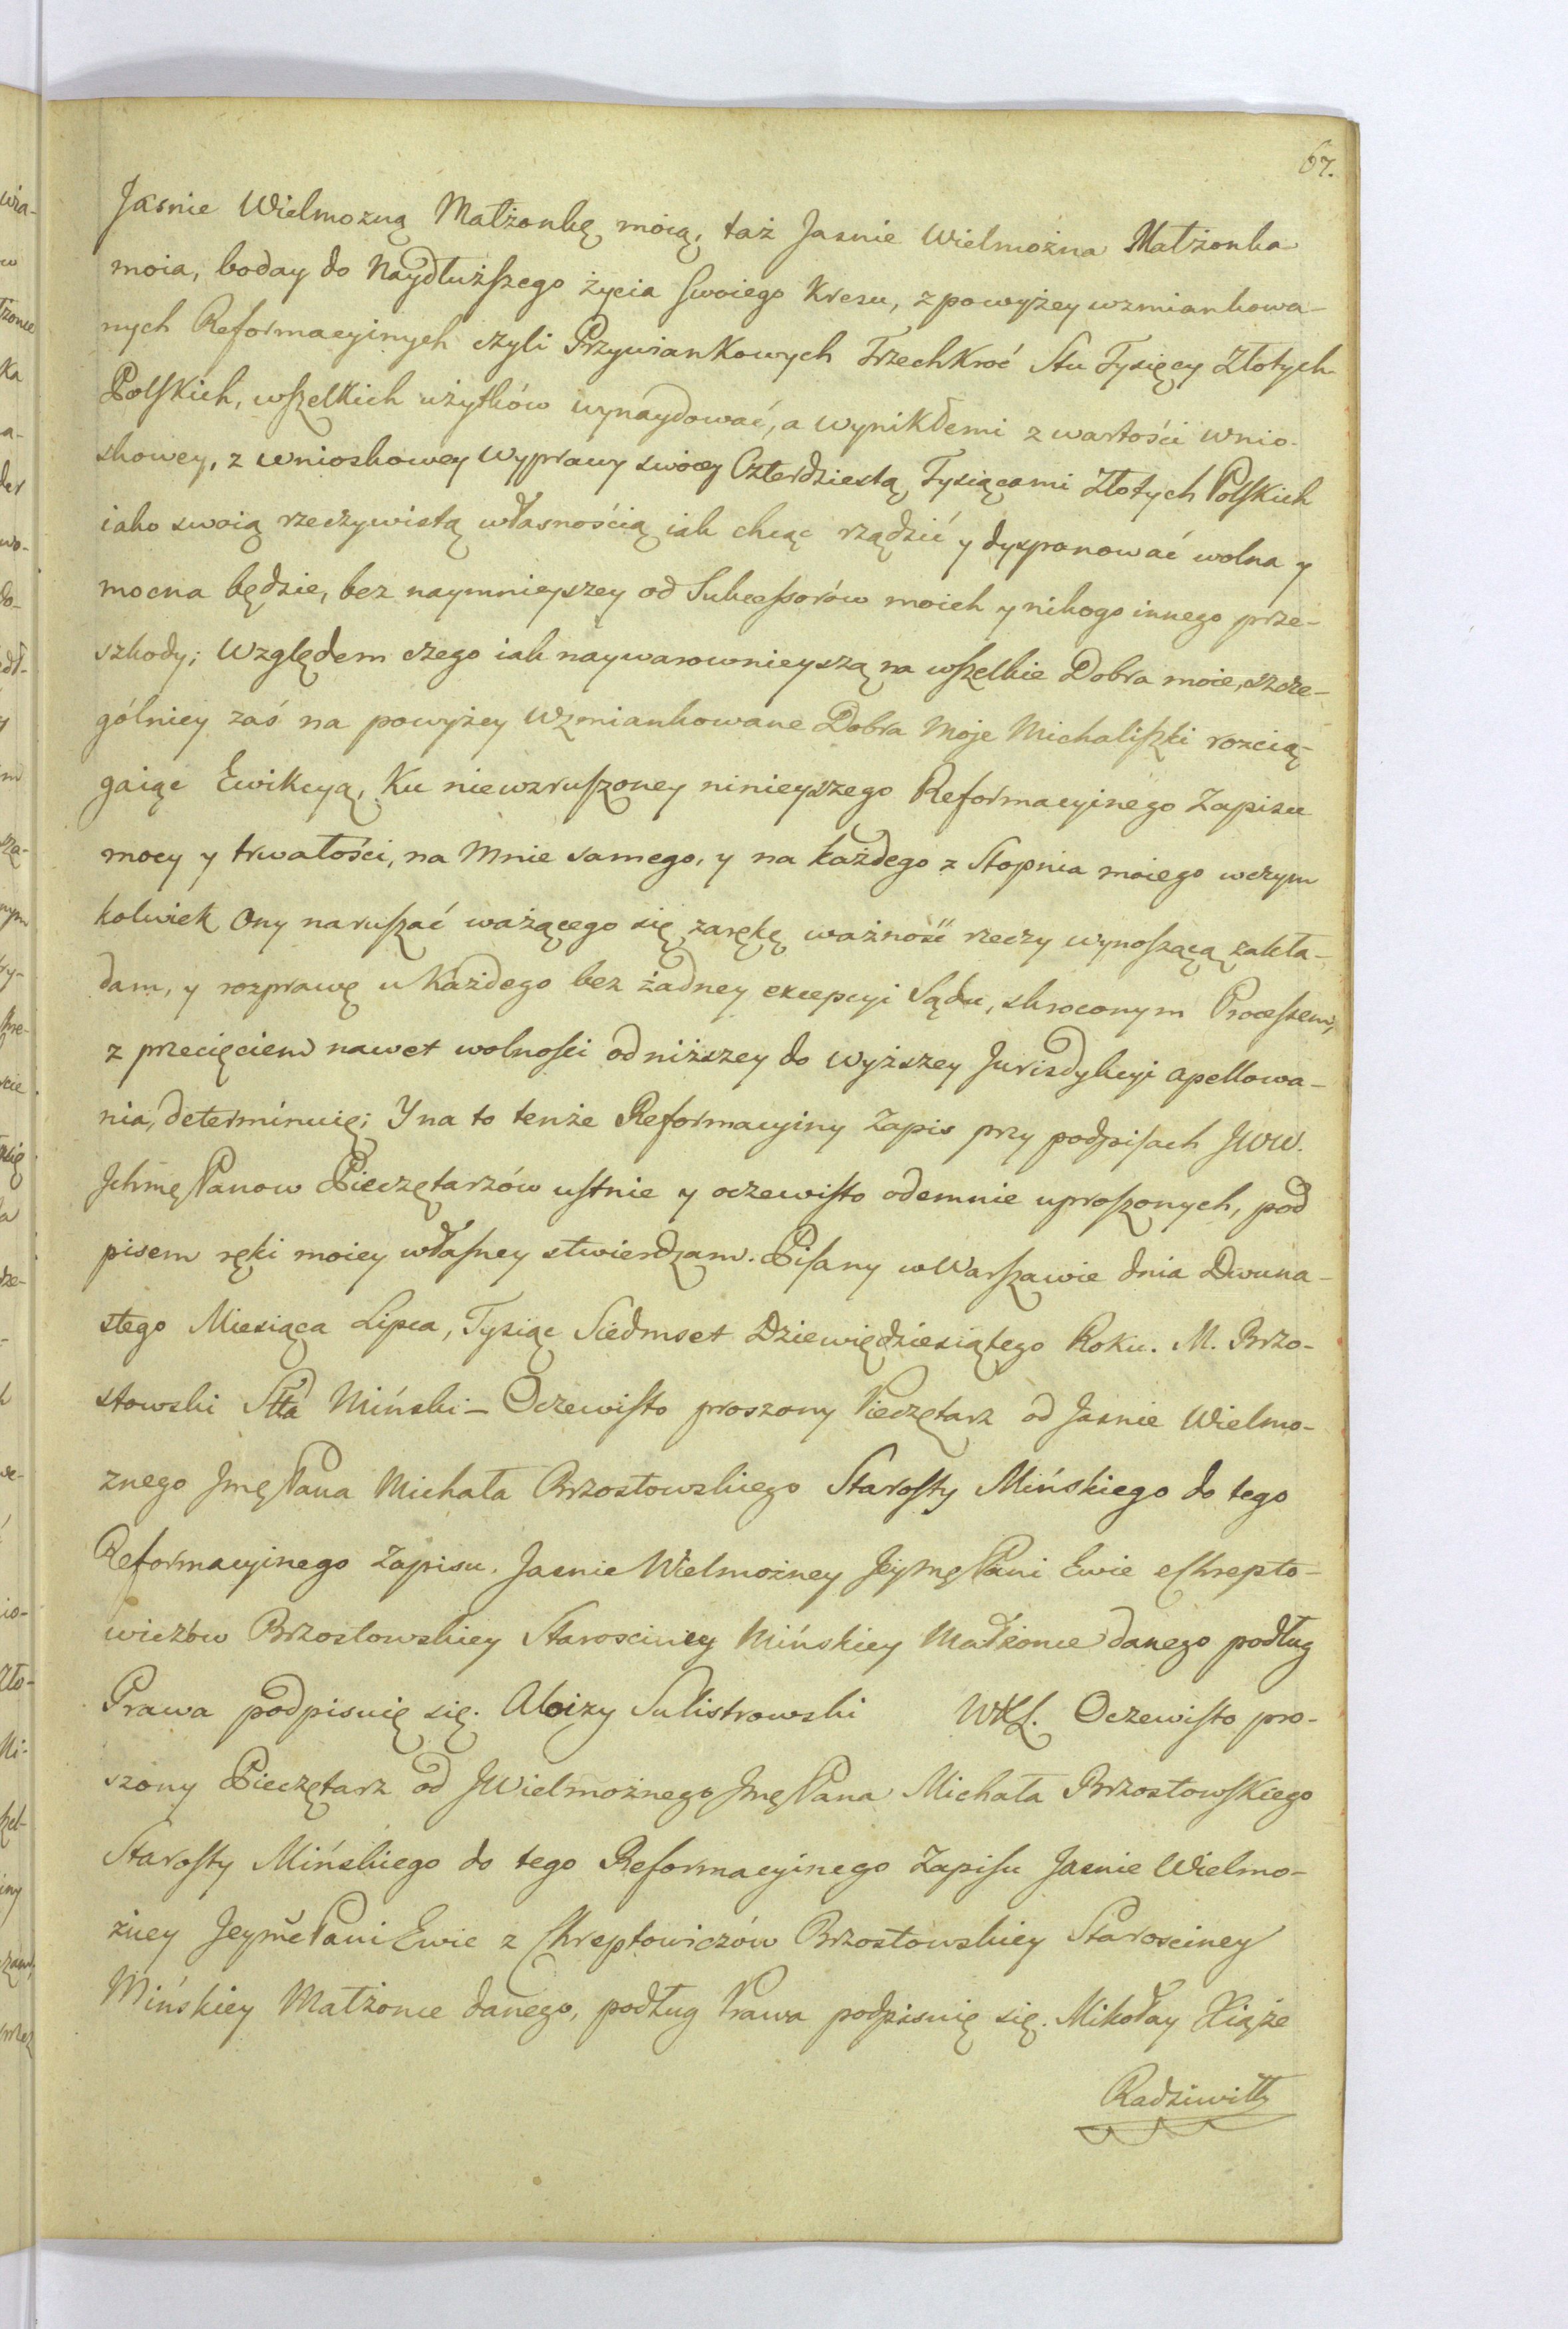 67.
Jasnie Wielmozną Małżonkę moią, taż Jasnie Wielmożna Małżonka
moia, boday do Naydłuższego życia swoiego Kresu, z powyżey wzmiankowa-
nych Reformacyinych czyli Przywiankowych Trzechkroć Stu Tysięcy Złotych
Polskich, wszelkich użytków wynaydować, a wynikłemi z wartości wnio-
skowey, z wnioskowey wyprawy swoiey Czterdziestą Tysiącami Złotych Polskich
iako swoią rzeczywistą własnością iak chcąc rządzić y dysponować wolna y
mocna będzie, bez naymnieyszey od Sukcessorów moich y nikogo innego prze-
szkody; Względem czego iak naywarownieyszą na wszelkie Dobra moie, szcze-
gólniey zaś na powyżey wzmiankowane Dobra Moje Michaliszki rozcią-
gaiąc Ewikcyą, Ku niewzruszoney ninieyszego Reformacyinego Zapisu
mocy y trwałości, na Mnie samego, y na każdego z Stopnia moiego wczym
kolwiek Ony naruszać ważącego się zarękę ważność rzeczy wynoszącą zakła-
dam, y rozprawę u Każdego bez żadney excepcyi Sądu, skroconym Processem,
z przecięciem nawet wolności od niższey do wyższey Jurisdykcyi apellowa-
nia, determinuię; Y na to tenże Reformacyiny Zapis przy podpisach JWW.
Jchmę Panow Pieczętarzów ustnie y oczewisto odemnie uproszonych, pod
pisem ręki moiey własney stwierdzam. Pisany w Warszawie dnia Dwuna-
stego Miesiąca Lipca, Tysiąc Siedmset Dziewiędziesiątego Roku. M. Brzo-
stowski Stta Miński – Oczewisto proszony Pieczętarz od Jasnie Wielmo-
znego Jmę Pana Michała Brzostowskiego Starosty Mińskiego do tego
Reformacyinego Zapisu. Jasnie Wielmożney Jeymę Pani Ewie z Chrepto-
wiczów Brzostowskiey Starosciney Mińskiey Małżonce danego podług
Prawa podpisuię się. Aloizy Sulistrowski WKL. Oczewisto pro-
szony Pieczętarz od JWielmożnego Jmę Pana Michała Brzostowskiego
Starosty Mińskiego do tego Reformacyinego Zapisu Jasnie Wielmo-
żney Jeymć Pani Ewie z Chreptowiczów Brzostowskiey Starosciney
Mińskiey Małżonce danego, podług Prawa podpisuię się. Mikołay Xiąże
Radziwiłł